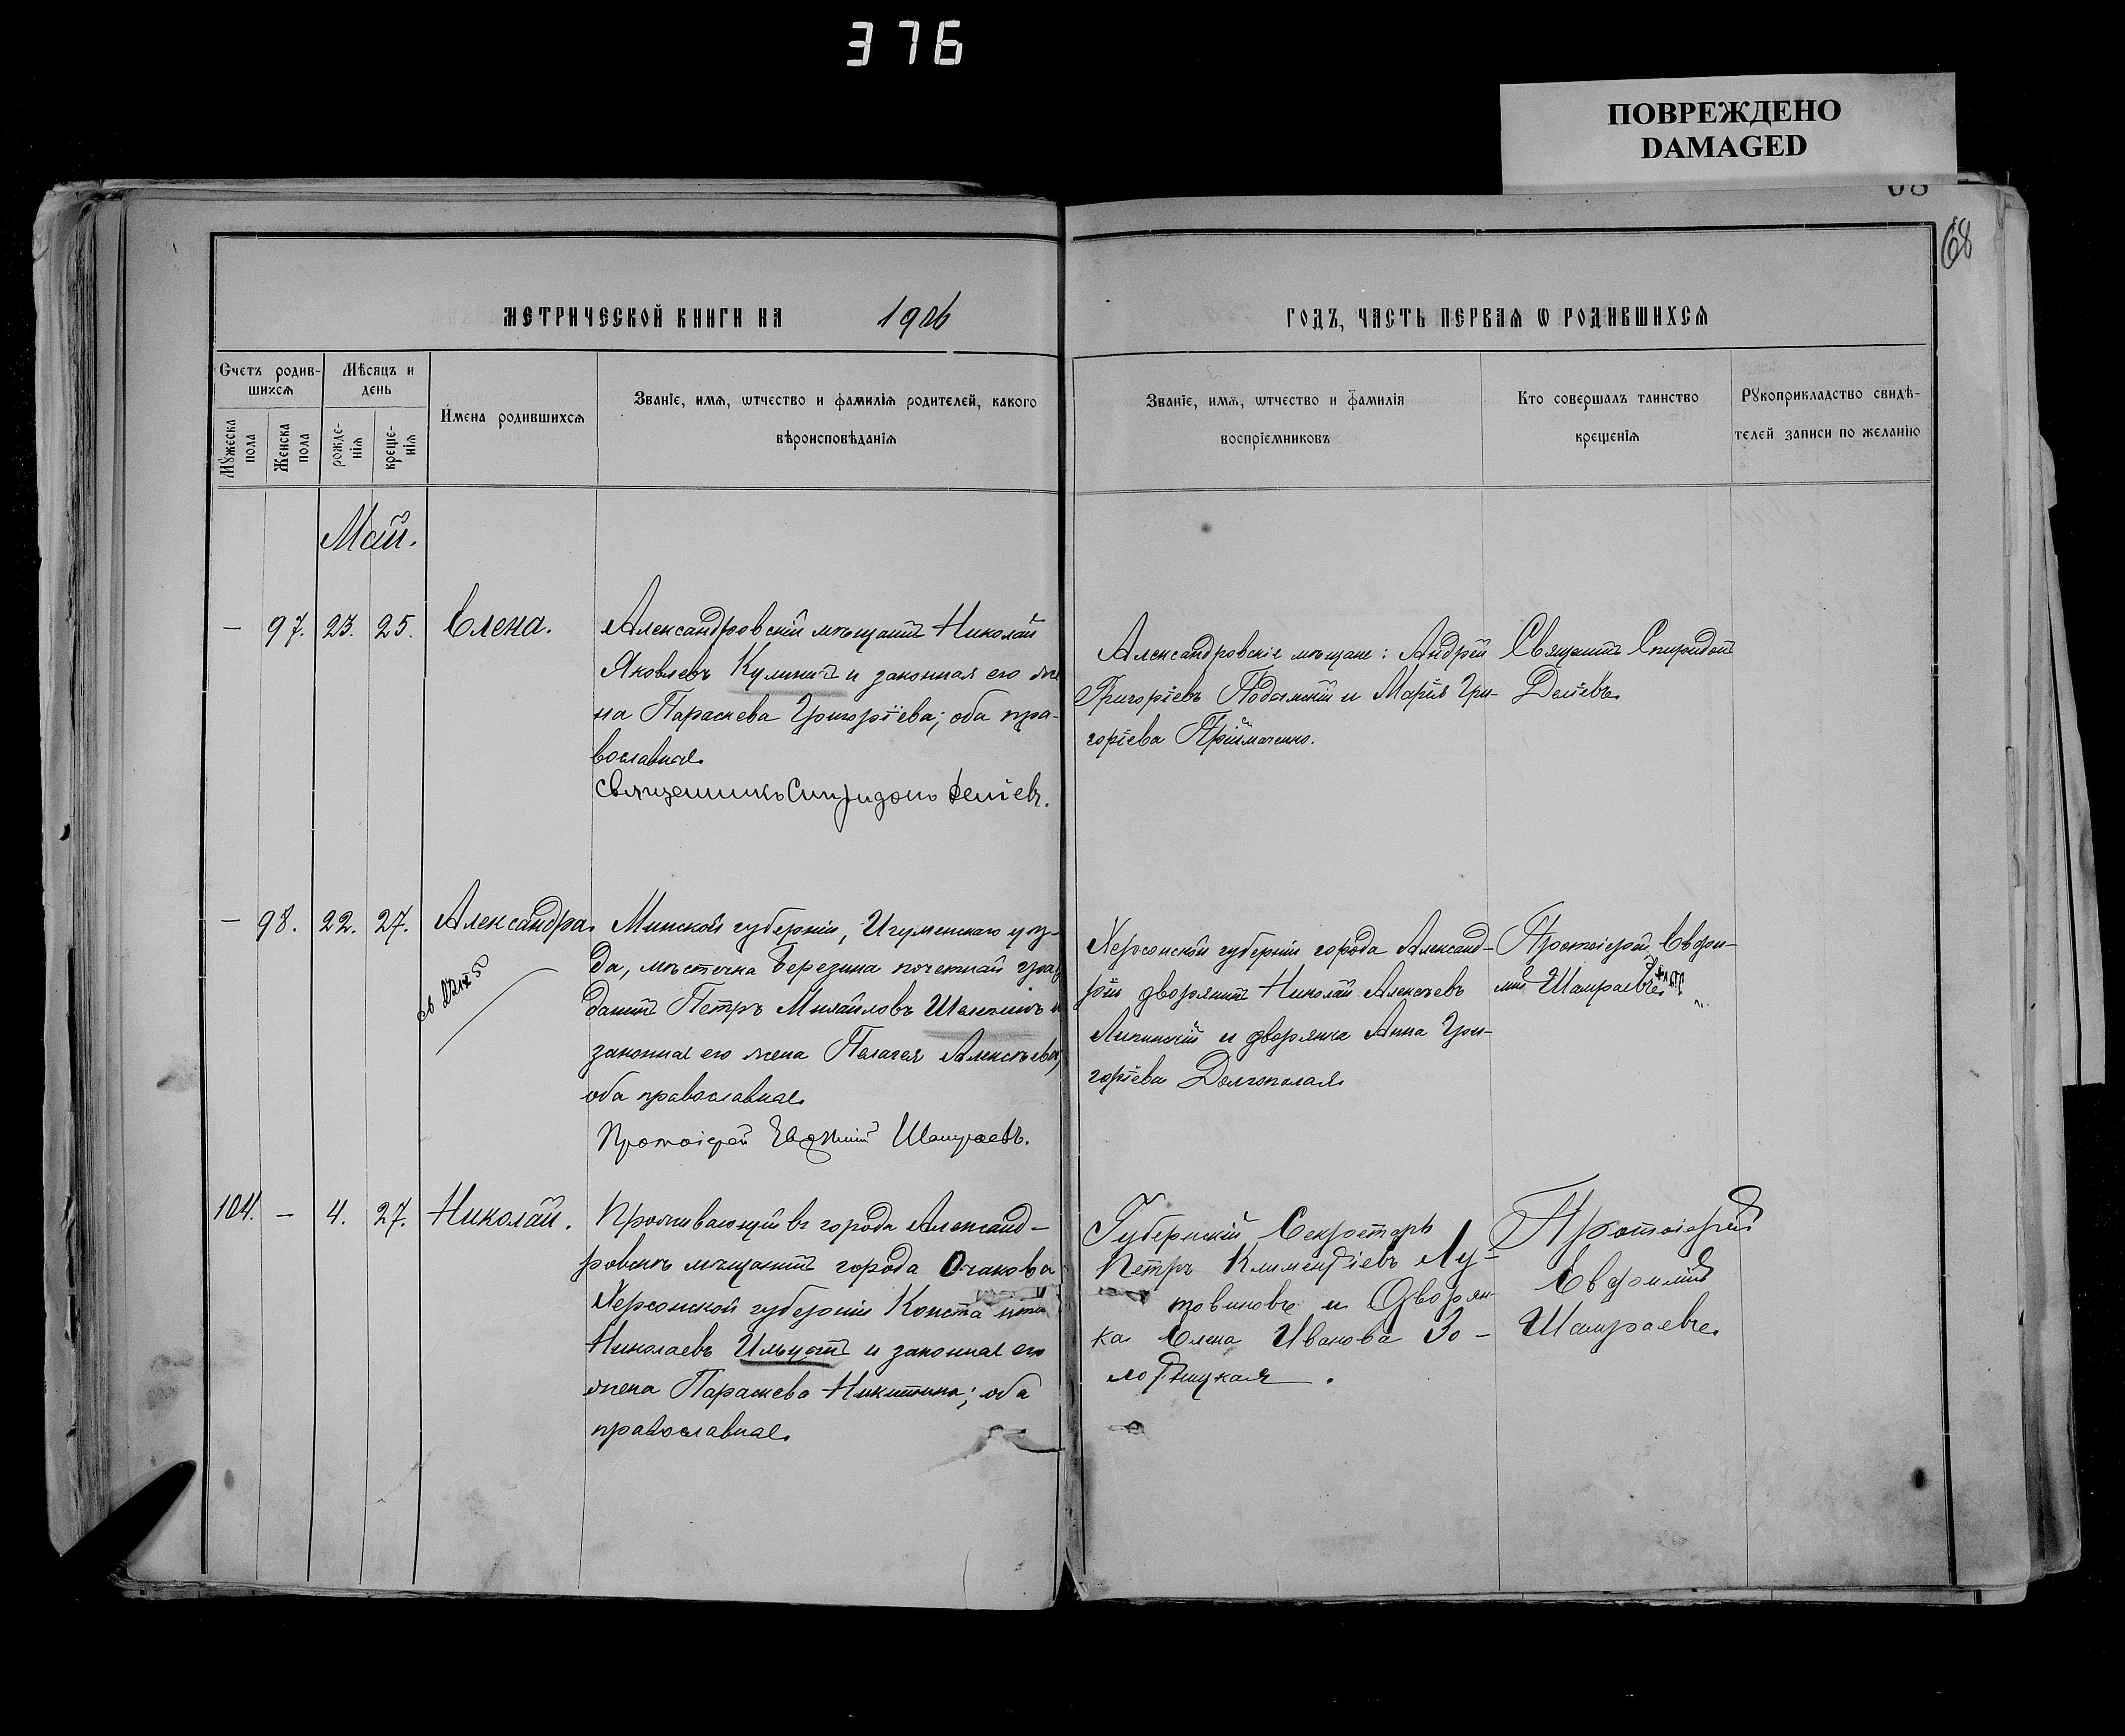 376
ПОВРЕЖДЕНО
DAMAGED
68
68
МЕТРИЧЕСКОЙ КНИГИ НА 1906 ГОДЪ, ЧАСТЬ ПЕРВАѦ Ѡ РОДИВШИХСѦ
Счетъ родив-
шихсѧ
Мѣсяцъ и
день
Мꙋжеска
пола
Женска
пола
рожде-
нїѧ
креще-
нїѧ
Имена родившихсѧ
Званїе, имѧ, ѿтчество и фамилїѧ родителей, какого
вѣроисповѣданїѧ
Званїе, имѧ, ѿтчество и фамилїѧ
воспрїемниковъ
Кто совершалъ таинство
крещенїѧ
Рꙋкоприкладство свидѣ-
телей записи по желанїю
Май.
— 97. 23. 25. Елена.
Александровскій мѣщанинъ Николай
Яковлевъ Кулинич и законная его же
на Параскева Григоріева; оба пра-
вославные
Священникъ Спиридонъ Деліевъ.
Александровскіе мѣщане: Андрей
Григоріевъ и Марія Гри-
горіева Прійматенко.
Священникъ Спиридонъ
Деліевъ
— 98. 22. 27. Александра.
Минской губерніи, Игуменскаго уѣз-
да, мѣстечка Березина почетный граж
данинъ Петръ Михайловъ и
законная его жена Пелагея Алексѣева,
оба православные.
Протоіерей Евфимій Шамраевъ.
Херсонской губерніи города Александ-
ріи дворянинъ Николай Алексѣевъ
Липинскій и дворянка Анна Гри-
горіева Долгополая
Протоіерей Евфи-
мій Шамраевъ
104. — 4. 27. Николай.
Проживающій въ городѣ Александ-
ровскѣ мѣщанинъ города Очакова
Херсонской губерніи Константинъ
Николаевъ и законная его
жена Параскева Никитина; оба
православные.
Губернскій Секретарь
Петръ Климентіевъ Лу-
товиновъ и Дворян-
ка Елена Иванова Зо-
лотницкая.
Протоіерей
Евфимій
Шамраевъ.